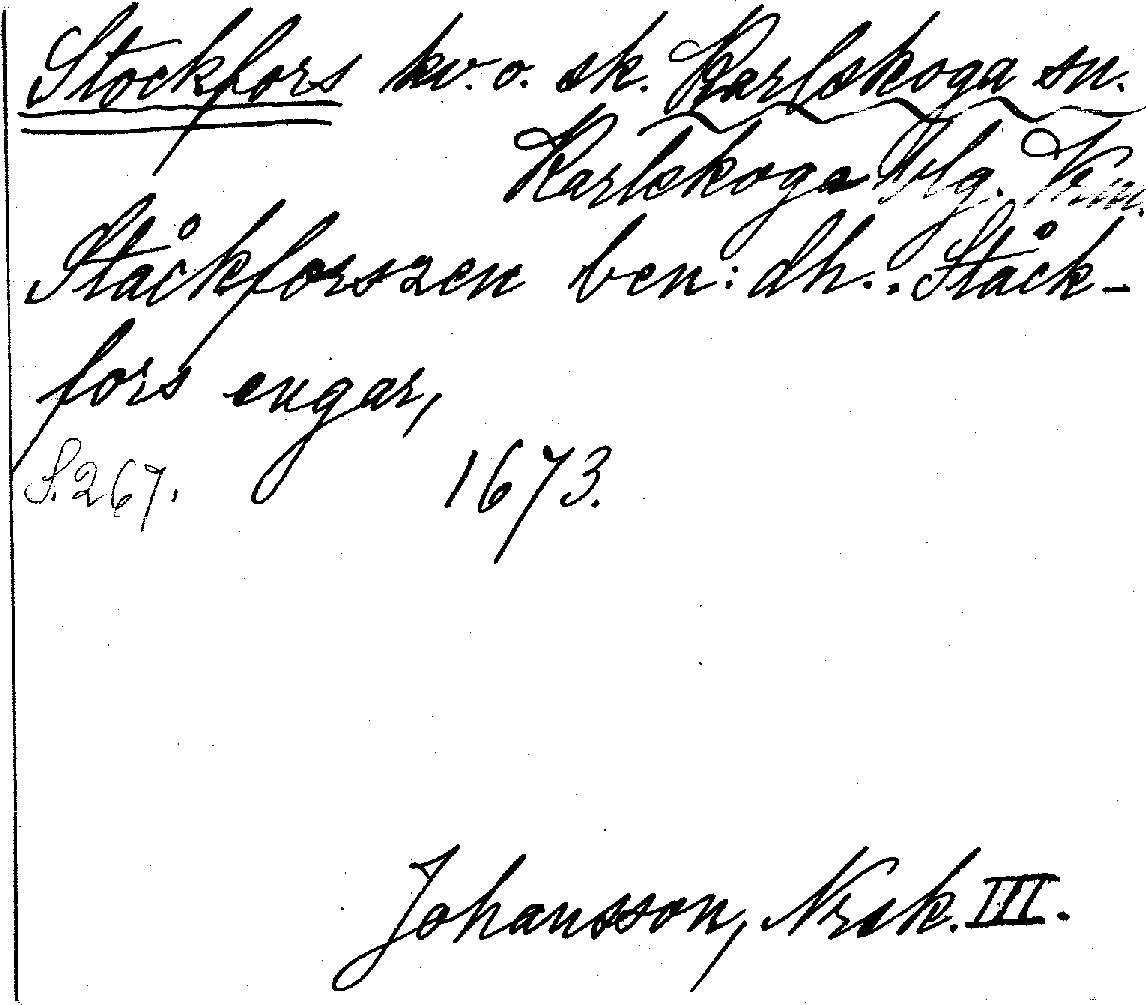 Stockfors kv. o. sk. Karlskoga sn.
Karlskoga blg. Vrm.
Ståckforszen ben: dh.. Ståck-
fors engar,
S. 267. 1673.
Johansson, Nrik. III.